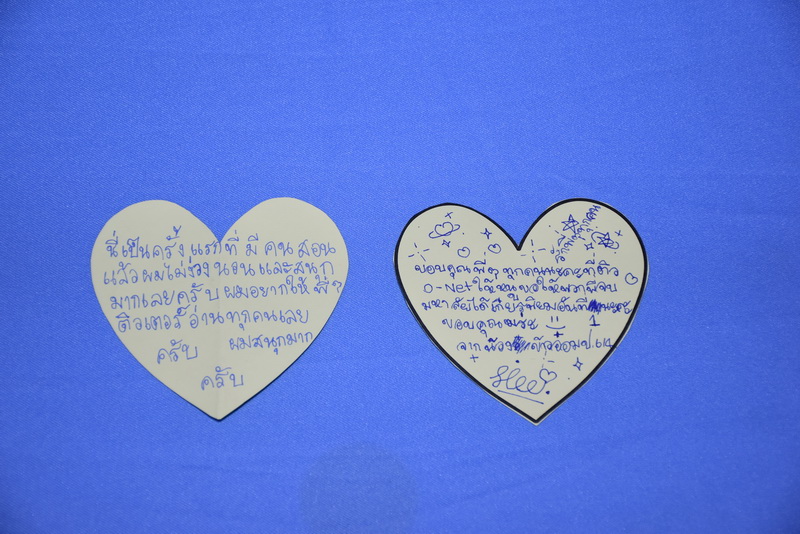 นี่เป็นครั้งแรกที่ มี คน สอน
แล้วผมไม่ง่วง นอน และสนุก
มากเลยครับ ผมอยากให้ พี่ๆ
ติวเตอร์ อ่านทุกคนเลย
ครับ ผมสนุกมาก
ครับ
ขอบคุณพี่ๆ ทุกคนนะคะที่ติว
O-Net ให้หนู ขอให้พวกพี่จบ
มหาลัยได้เกียรตินิยมอันที่ 1
ขอบคุณค่ะ
จาก น้อง ป.6/4